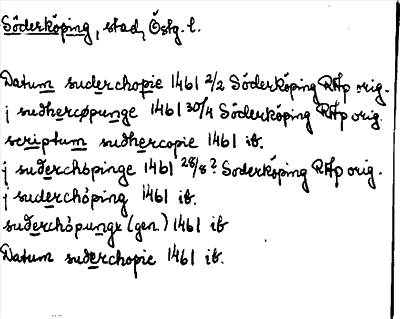 Söderköping, stad, Östg. l.
Datum suderchopie 1461 2/2 Söderköping RAp orig.
j sudhercøpunge 1461 30/4 Söderköping RAp orig.
scriptum sudhercopie 1461 ib.
j suderchöpinge 1461 28/8? Söderköping RAp orig.
j suderchöping 1461 ib.
suderchöpungx (gen.) 1461 ib
Datum suderchopie 1461 ib.